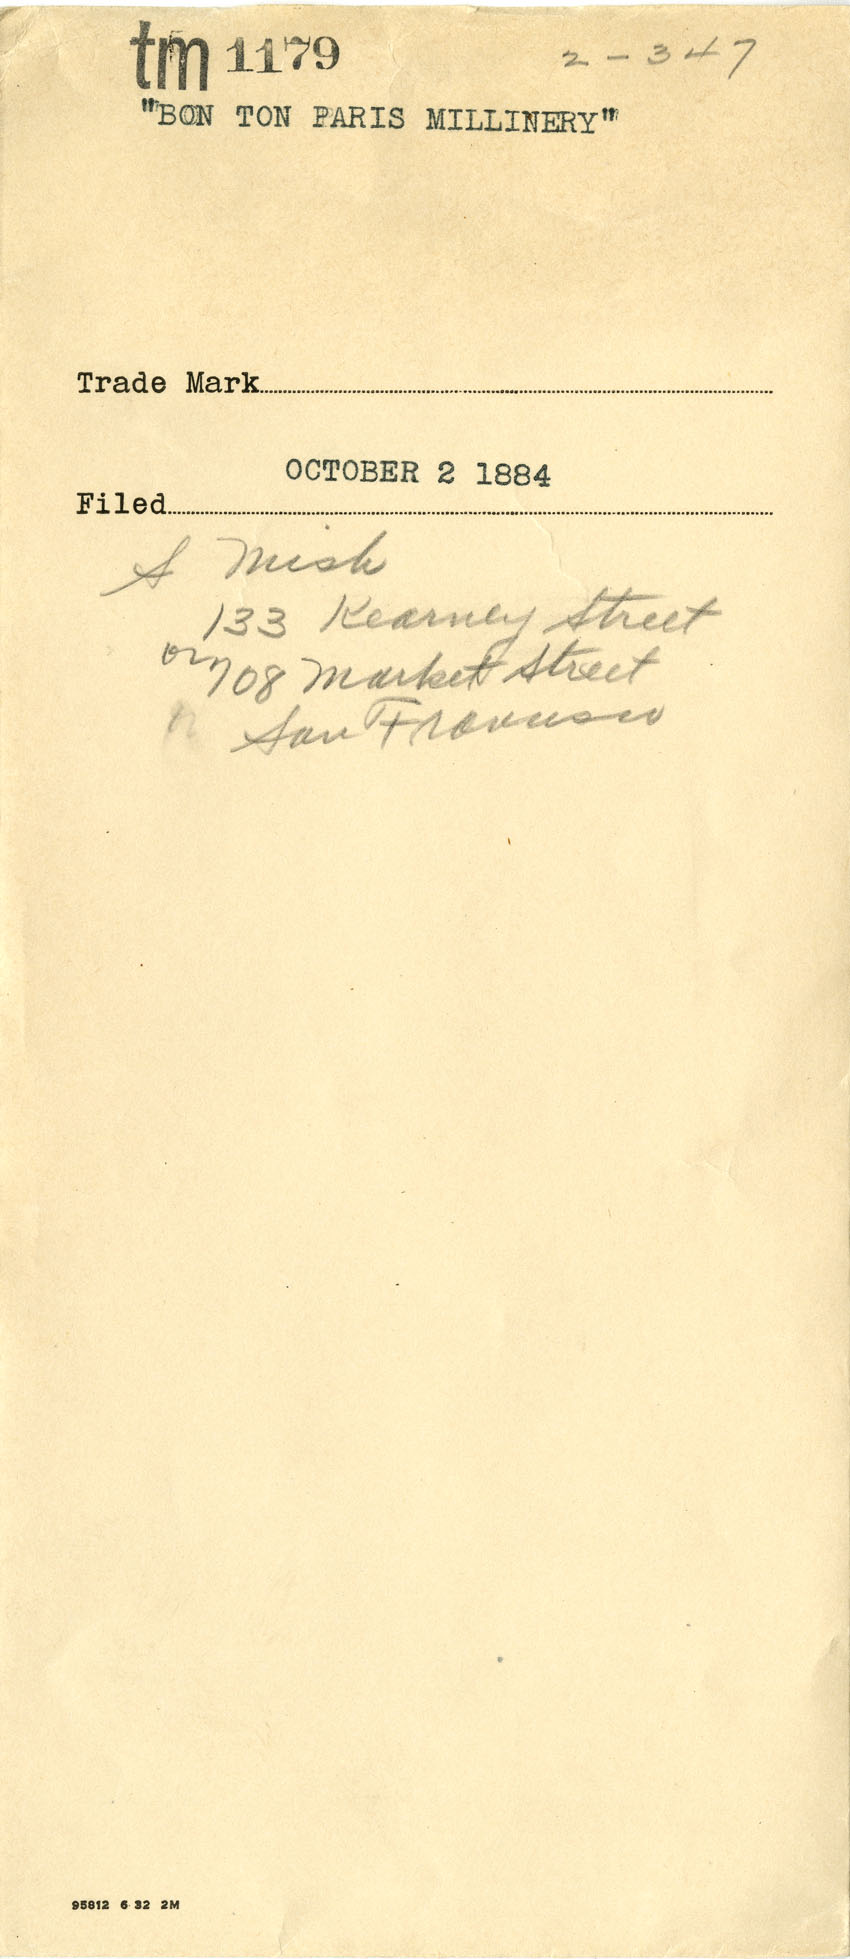 tm 1179 2-347
"BON TON PARIS MILLINERY"
Trade Mark
OCTOBER 2 1884
Filed
S Mish
133 Kearney Street
or 708 Market Street
San Francisco
95812 6 32 2M